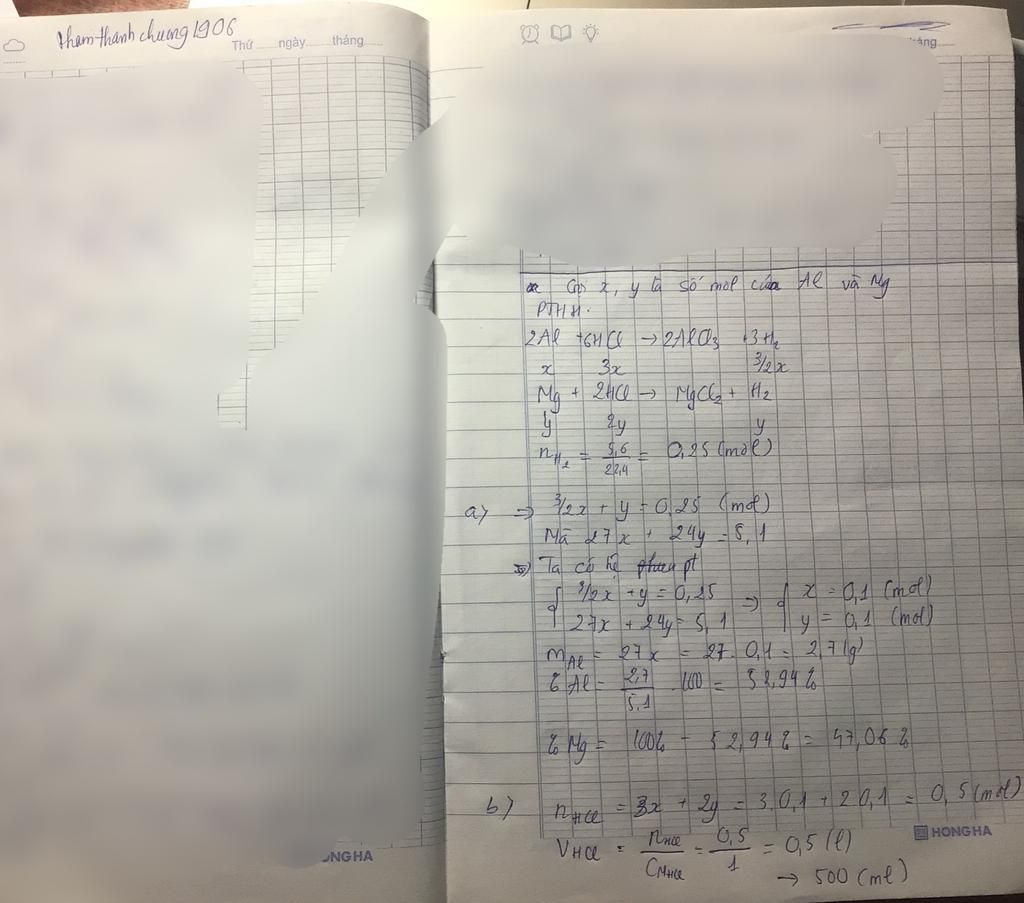 thamthanhchuong1906
Thứ ngày tháng
áng
Gọi x, y là số mol của Al và Mg
PTHH.
2Al + 6HCl → 2AlCl3 + 3H2
x 3x 3/2x
Mg + 2HCl → MgCl2 + H2
y 2y y
nH2 = 5,6/22,4 = 0,25 (mol)
a) ⇒ 3/2x + y = 0,25 (mol)
Mà 27x + 24y = 5,1
⇒ Ta có hệ pt
{ 3/2x + y = 0,25 ⇒ { x = 0,1 (mol)
27x + 24y = 5,1 y = 0,1 (mol)
mAl = 27x = 27. 0,1 = 2,7 (g)
% Al = 2,7/5,1 .100 = 52,94%
% Mg = 100% - 52,94% = 47,06%
b) nHCl = 3x + 2y = 3.0,1 + 2.0,1 = 0,5 (mol)
VHCl = nHCl/CMHCl = 0,5/1 = 0,5 (l)
→ 500 (ml)
HONG HA
ONG HA